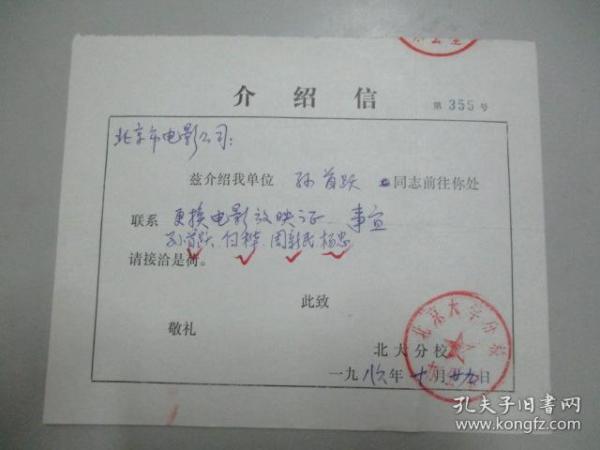 介绍信
第 355 号
北京市电影公司:
兹介绍我单位 孙首跃 同志前往你处
联系 更换电影放映证 事宜
孙首跃 付桦 周新民 杨忠
请接洽是荷。
此致
敬礼
北大分校
一九八六年十月廿九日
北京大学分校
孔夫子旧书网
www.kongfz.com